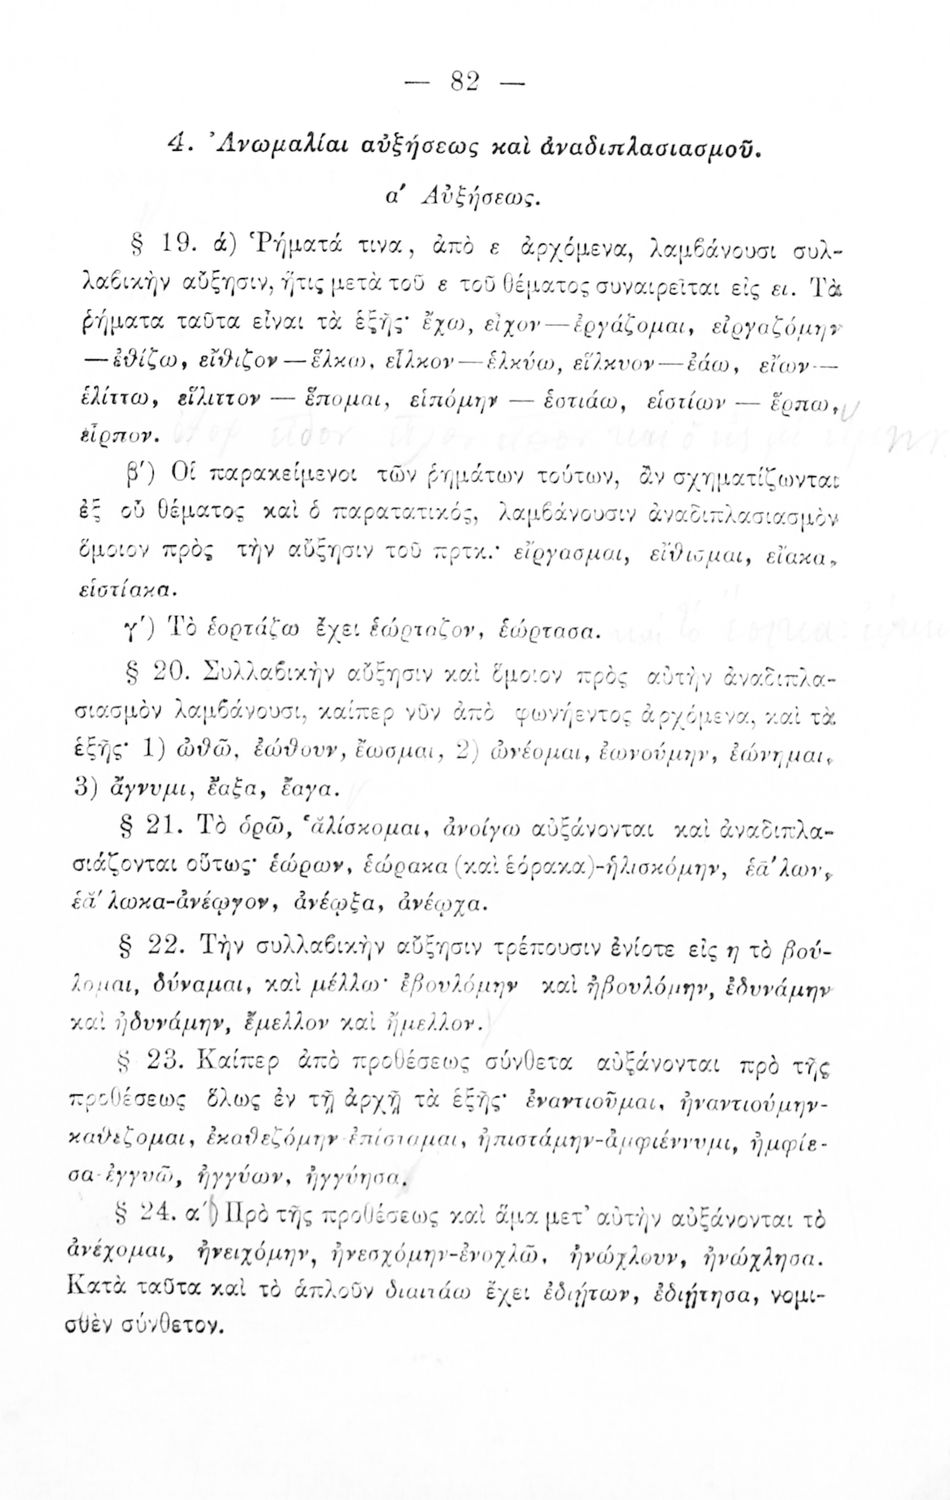 — 82 —
4. Ἀνωμαλίαι αὐξήσεως καὶ ἀναδιπλασιασμοῦ.
α' Αὐξήσεως.
§ 19. ά) Ῥήματά τινα, ἀπὸ ε ἀρχόμενα, λαμβάνουσι συλ-
λαβικὴν αὔξησιν, ἥτις μετὰ τοῦ ε τοῦ θέματος συναιρεῖται εἰς ει. Τὰ
ῥήματα ταῦτα εἶναι τὰ ἑξῆς· ἔχω, εἶχον—ἐργάζομαι, εἰργαζόμην
—ἐθίζω, εἴθιζον—ἕλκω, εἷλκον—ἑλκύω, εἵλκυον—ἐάω, εἴων—
ἑλίττω, εἵλιττον — ἕπομαι, εἱπόμην — ἑστιάω, εἱστίων — ἕρπω,
εἷρπον.
β') Οἱ παρακείμενοι τῶν ῥημάτων τούτων, ἂν σχηματίζωνται
ἐξ οὗ θέματος καὶ ὁ παρατατικός, λαμβάνουσιν ἀναδιπλασιασμὸν
ὅμοιον πρὸς τὴν αὔξησιν τοῦ πρτκ.· εἴργασμαι, εἴθισμαι, εἴακα,
εἱστίακα.
γ') Τὸ ἑορτάζω ἔχει ἑώρταζον, ἑώρτασα.
§ 20. Συλλαβικὴν αὔξησιν καὶ ὅμοιον πρὸς αὐτὴν ἀναδιπλα-
σιασμὸν λαμβάνουσι, καίπερ νῦν ἀπὸ φωνήεντος ἀρχόμενα, καὶ τὰ
ἑξῆς· 1) ὠθῶ, ἐώθουν, ἔωσμαι, 2) ὠνέομαι, ἐωνούμην, ἐώνημαι,
3) ἄγνυμι, ἔαξα, ἔαγα.
§ 21. Τὸ ὁρῶ, ἁλίσκομαι, ἀνοίγω αὐξάνονται καὶ ἀναδιπλα-
σιάζονται οὕτως· ἑώρων, ἑώρακα (καὶ ἑόρακα)-ἡλισκόμην, ἑᾱ́λων,
ἑᾱ́λωκα-ἀνέῳγον, ἀνέῳξα, ἀνέῳχα.
§ 22. Τὴν συλλαβικὴν αὔξησιν τρέπουσιν ἐνίοτε εἰς η τὸ βού-
λομαι, δύναμαι, καὶ μέλλω· ἐβουλόμην καὶ ἠβουλόμην, ἐδυνάμην
καὶ ἠδυνάμην, ἔμελλον καὶ ἤμελλον.
§ 23. Καίπερ ἀπὸ προθέσεως σύνθετα αὐξάνονται πρὸ τῆς
προθέσεως ὅλως ἐν τῇ ἀρχῇ τὰ ἑξῆς· ἐναντιοῦμαι, ἠναντιούμην-
καθέζομαι, ἐκαθεζόμην ἐπίσταμαι, ἠπιστάμην-ἀμφιέννυμι, ἠμφίε-
σα-ἐγγυῶ, ἠγγύων, ἠγγύησα.
§ 24. α') Πρὸ τῆς προθέσεως καὶ ἅμα μετ' αὐτὴν αὐξάνονται τὸ
ἀνέχομαι, ἠνειχόμην, ἠνεσχόμην-ἐνοχλῶ, ἠνώχλουν, ἠνώχλησα.
Κατὰ ταῦτα καὶ τὸ ἁπλοῦν διαιτάω ἔχει ἐδιῄτων, ἐδιῄτησα, νομι-
σθὲν σύνθετον.